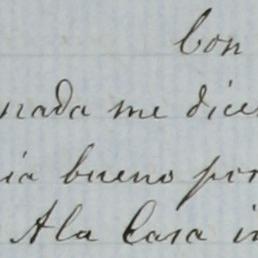 Con
nada me dice
ia bueno por
A la Casa